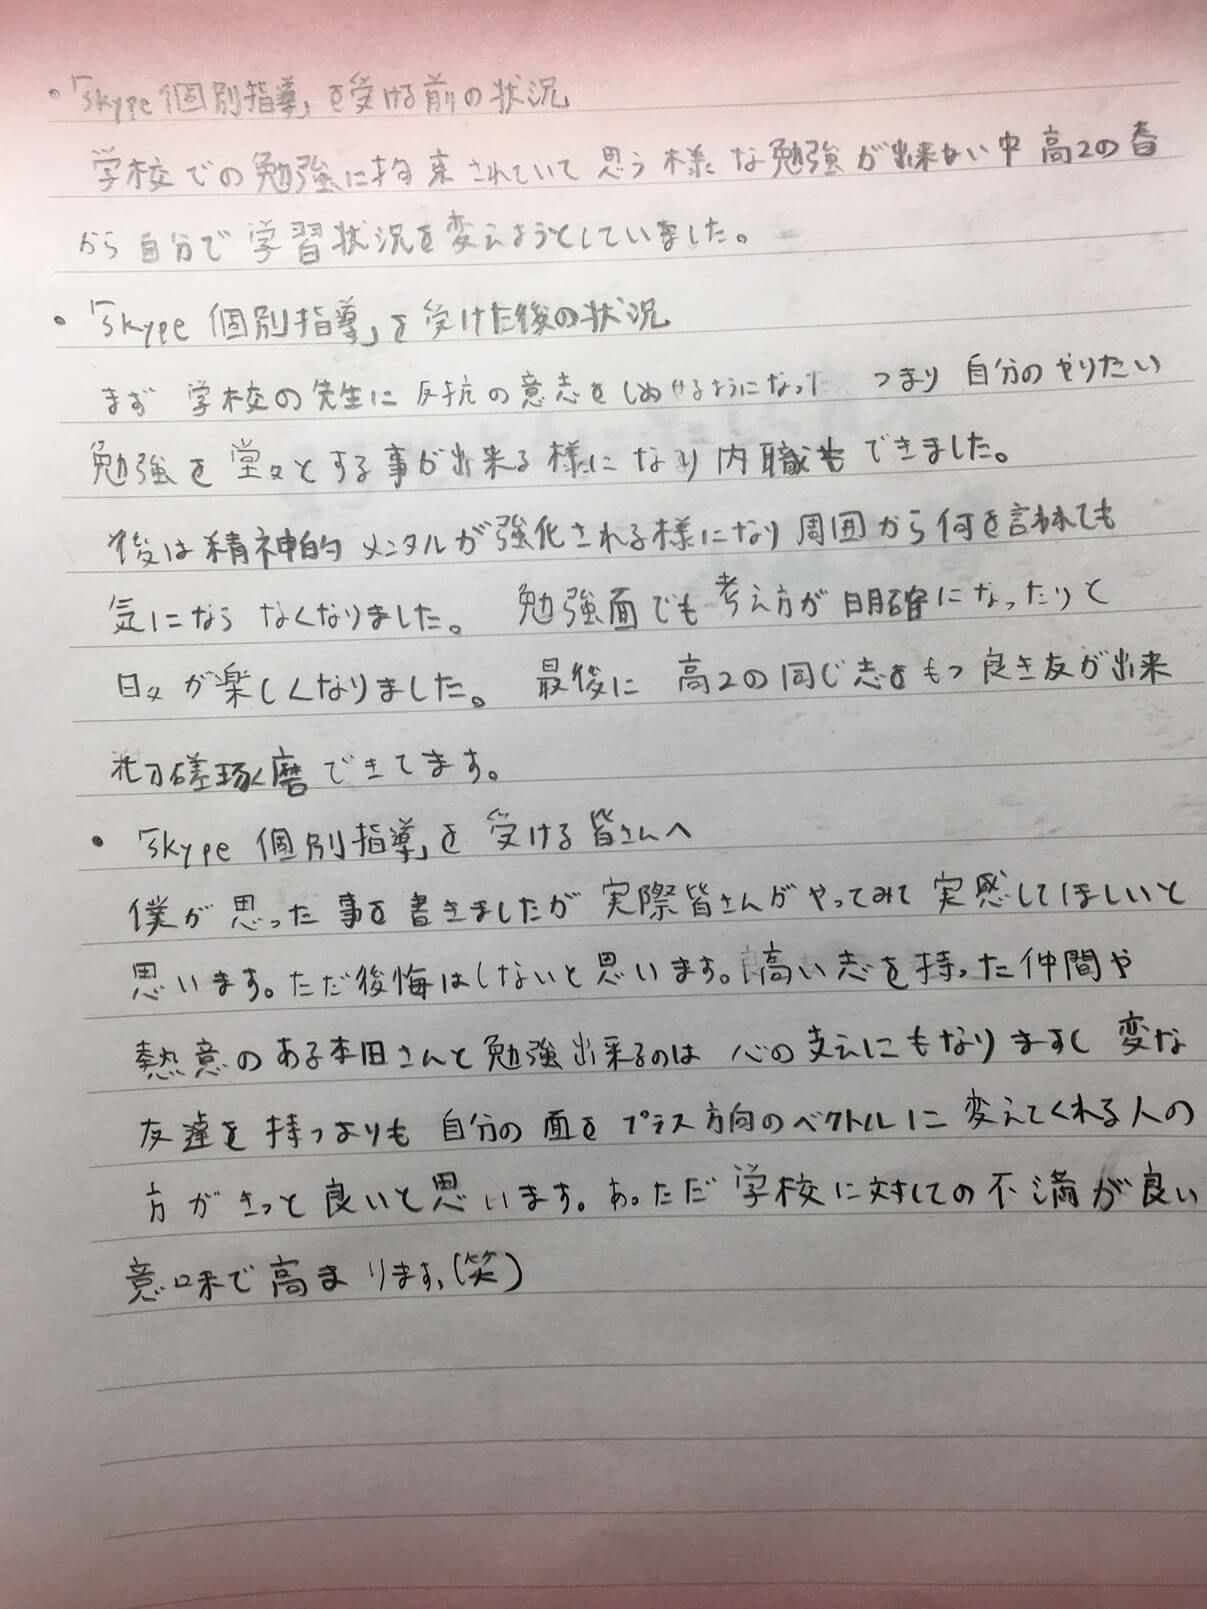 ・「Skype個別指導」を受ける前の状況
学校での勉強に拘束されていて思う様な勉強が出来ない中高2の春
から自分で学習状況を変えようとしていました。
・「Skype個別指導」を受けた後の状況
まず 学校の先生に反抗の意志をしめせるようになった つまり自分のやりたい
勉強を堂々とする事が出来る様になり内職もできました。
後は精神的メンタルが強化される様になり周囲から何を言われても
気にならなくなりました。 勉強面でも考え方が明確になったりと
日々が楽しくなりました。 最後に 高2の同じ志をもつ良き友が出来
切磋琢磨できてます。
・「Skype個別指導」を受ける皆さんへ
僕が思った事を書きましたが実際皆さんがやってみて実感してほしいと
思います。ただ後悔はしないと思います。高い志を持った仲間や
熱意のある本田さんと勉強出来るのは心の支えにもなりますし変な
友達を持つよりも自分の面をプラス方向のベクトルに変えてくれる人の
方がきっと良いと思います。あっただ学校に対しての不満が良い
意味で高まります、(笑)